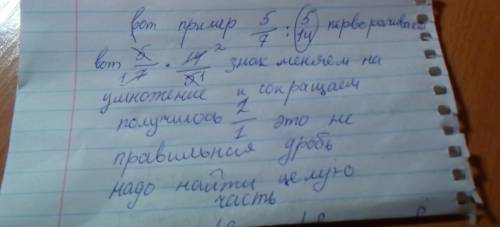 вот пример 5/7 : 5/14 переворачиваем
вот 5/7 · 14/5 знак меняем на
1 2 1
умножение и сокращаем
получилось 2/1 это не
правильная дробь
надо найти целую
часть